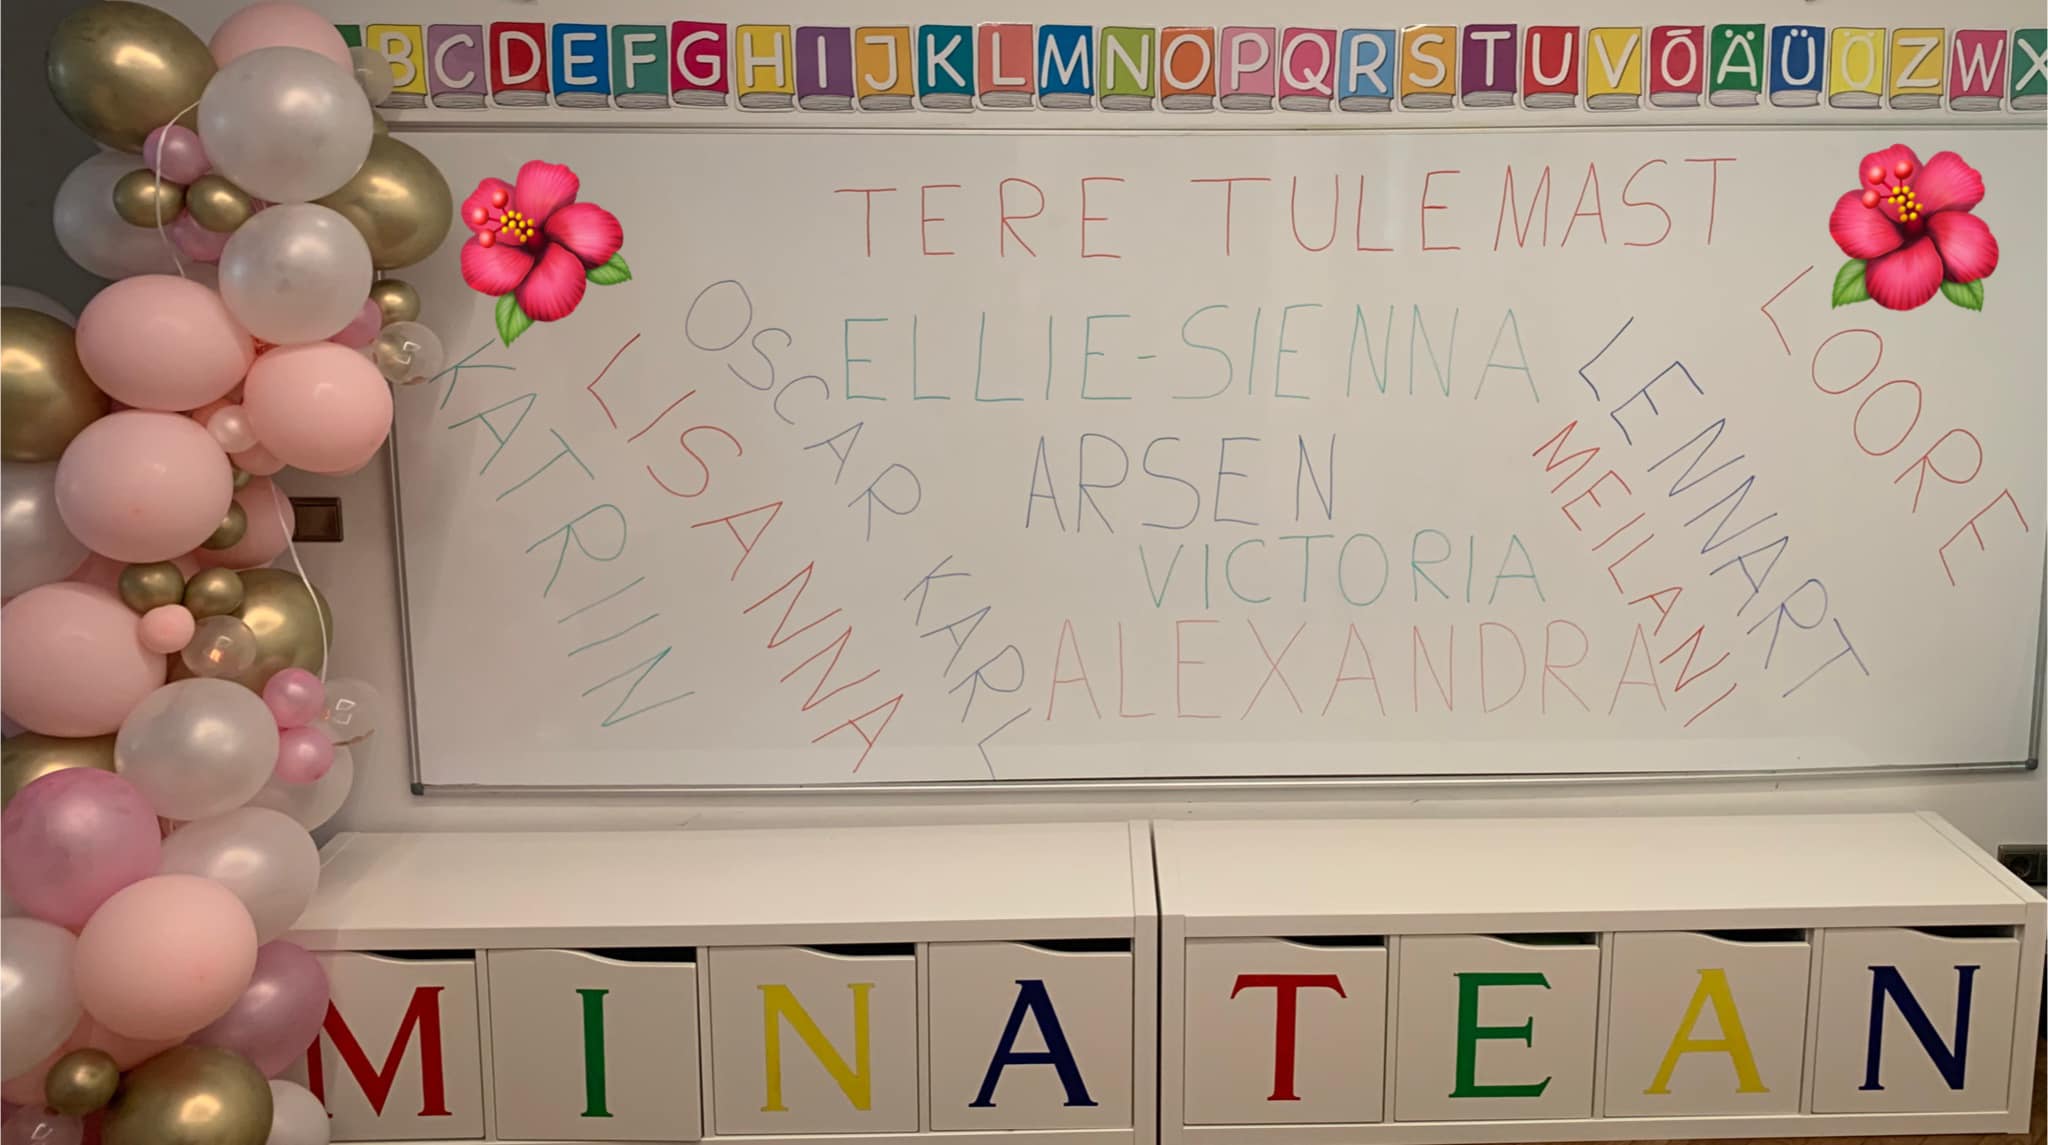 BCDEFGHIJKLMNOPQRSTUVÕÄÜÖZWX
TERE TULEMAST
OSCAR
ELLIE-SIENNA
LOORE
LENNART
KATRIIN
LISANNA
ARSEN
MEILANI
VICTORIA
KARL
ALEXANDRA
MINA TEAN